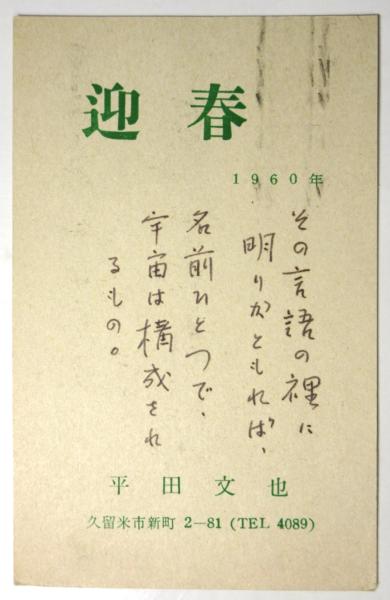 迎春
1960年
その言語の裡に
明りがともれば、
名前ひとつで、
宇宙は構成され
るもの。
平田文也
久留米市新町 2—81 (TEL 4089)